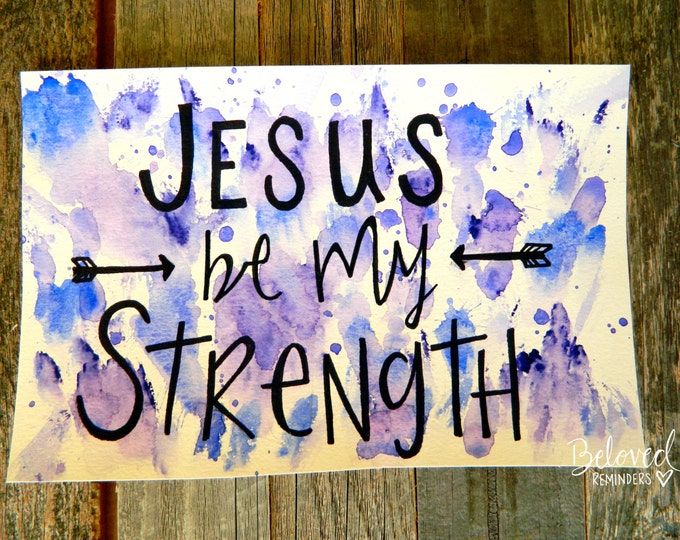 JESUS
be my
STRENGTH
Beloved
REMINDERS